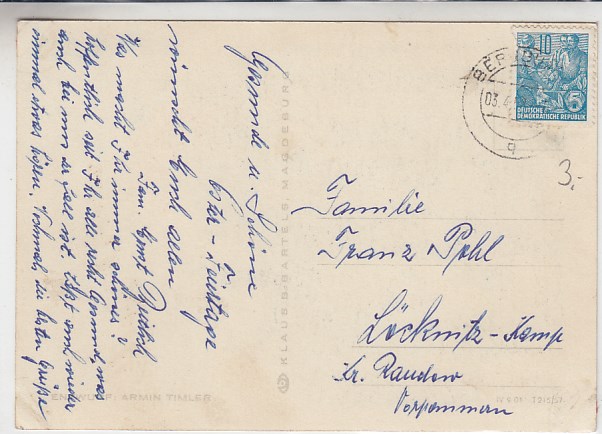 Gesunde u. Schöne
Oster-Feiertage
wünscht Euch allen
Fam. Ernst
Was macht Ihr immer schönes?
hoffentlich seit Ihr alle recht Gesund, was
auch bei uns der Fall ist. Laßt auch wieder
einmal etwas hören. Nochmals die besten Grüße
Familie
Franz Pohl
Löcknitz-Kamp
Kr. Randow
Vorpommern
BERLIN
03.4
q
10
5
DEUTSCHE
DEMOKRATISCHE REPUBLIK
3.-
KLAUS B. BARTELS, MAGDEBURG
ENTWURF: ARMIN TIMLER